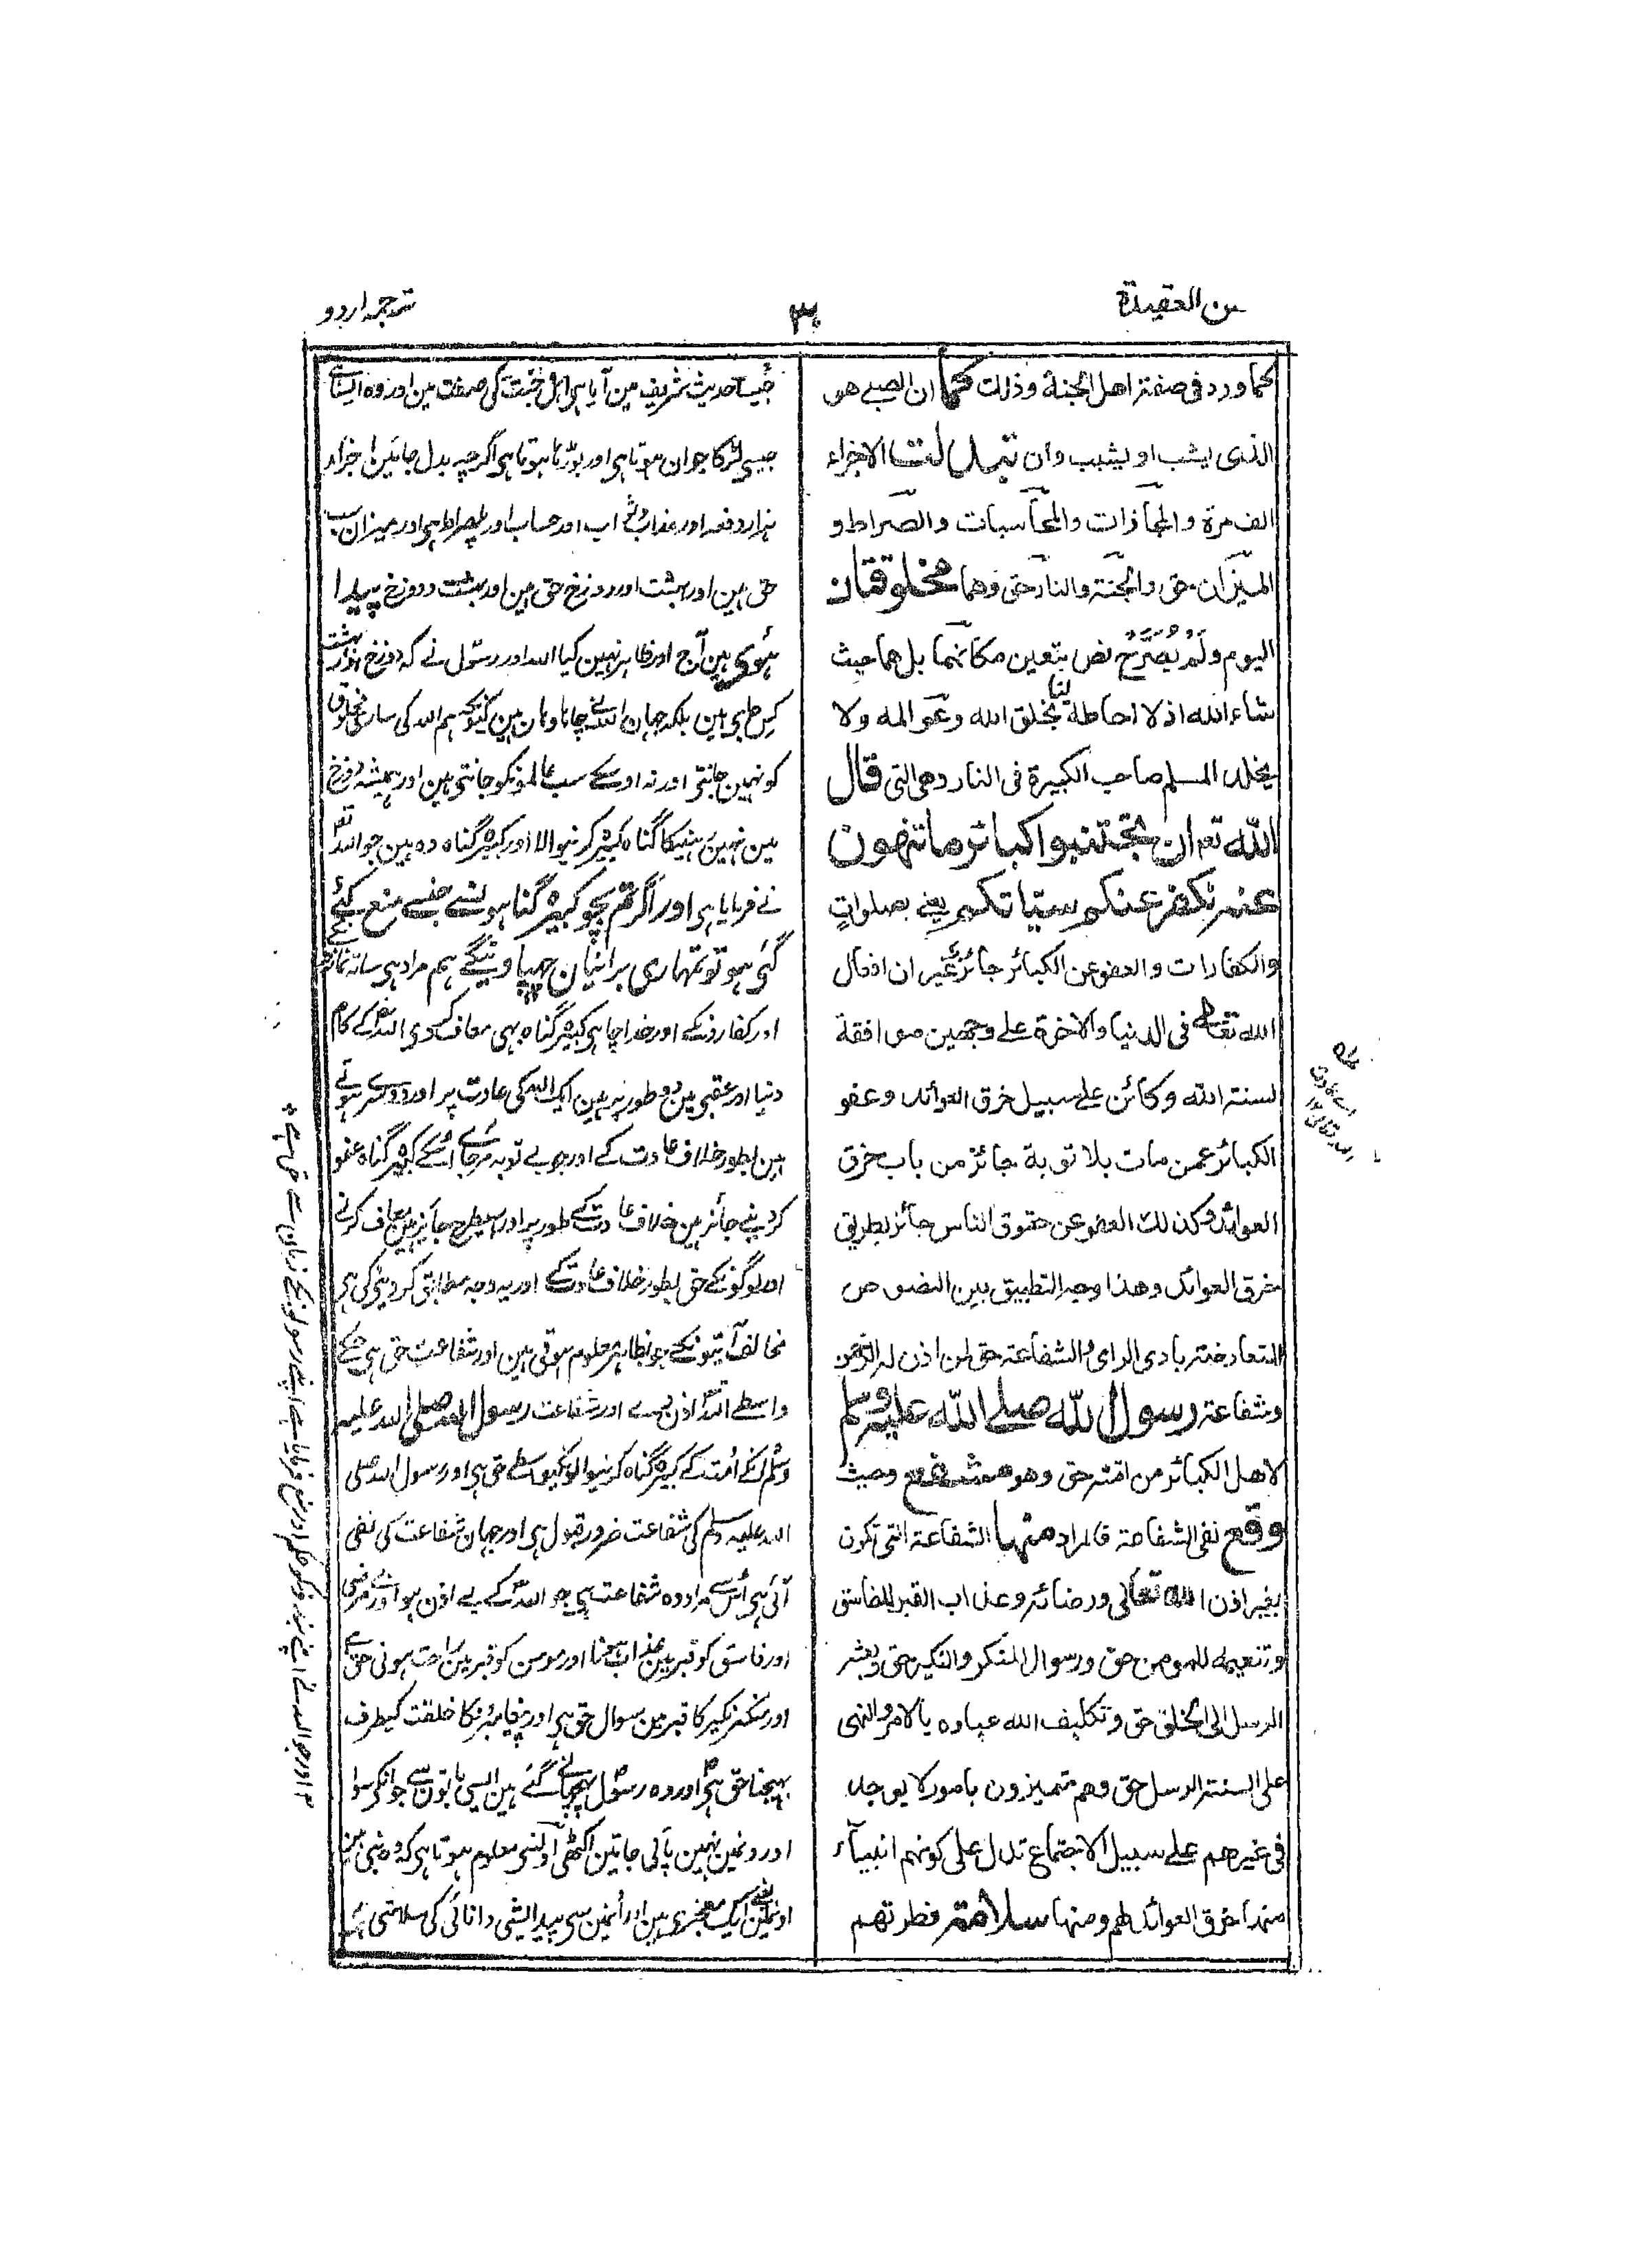 حسن العقيدة
٣
ترجمہ اردو
كما ورد فى صفة اهل الجنة وذلك كما ان الصبے هو
الذى يشب او يشيب وان تبدلت الاجزاء
الف مرة والمجازات والمحاسبات والصراط و
الميزان حق والجنة والنار حق وهما مخلوقتان
اليوم ولم يصرح نص بتعين مكانهما بل هما حيث
شاء الله اذ لا احاطة لنا بخلق الله وعوالمه ولا
يخلد المسلم صاحب الكبيرة فى النار وهى التى قال
الله تعہ ان تجتنبوا كبائر ما تنهون
عنه نكفر عنكم سيّاتكم يعنے بصلوات
والكفارات والعفو عن الكبائر جائز غير ان افعال
الله تعالے فى الدنيا والاخرة علے وجهين موافقة
لسنة الله وكائن علے سبيل خرق العوائد وعفو
الكبائر عمن مات بلا توبة جائز من باب خرق
العوائد وكذلك العفو عن حقوق الناس جائز بطريق
خرق العوائد وهذا وجه التطبيق بين النصوص
المتعارضة بادى الراى والشفاعة حق لمن اذن له الرحمن
وشفاعة رسول الله صلے الله عليه وسلم
لاهل الكبائر من امته حق وهو مشفع وحيث
وقع نفى الشفاعة فالمراد منها الشفاعة التى تكون
بغير اذن الله تعالى ورضائه وعذاب القبر للفاسق
وتنعيمه للمومن حق ورسوال المنكر والنكير حق وبعث
الرسل الى الخلق حق وتكليف الله عباده بالامر والنهى
على السنة الرسل حق وهم متميزون بامور لا يوجد
فى غيرهم علے سبيل الاجتماع تدل على كونهم انبياء
منها خرق العوائد لهم ومنها سلامة فطرتهم
جیسا حدیث شریف مین آیا ہی اہل جنت کی صفت مین اور وہ ایسا ہے
جیسی لڑکا جوان ہوتا ہی اور بوڑہا ہوتا ہی اگرچہ بدل جائین اجزاء
ہزار دفعہ اور عذاب وثواب اور حساب اور پلصراط ہی اور میزان سب
حق ہین اور بہشت اور دوزخ حق ہین اور بہشت ودوزخ پیدا
ہوئی ہین آج اور ظاہر نہین کیا اللہ اور رسول نے کہ دوزخ اور بہشت
کس جگہ ہین بلکہ جہان اللہ نے چاہا وہان ہین کیونکہ ہم اللہ کی ساری مخلوق
کو نہین جانتی اور نہ اوسکے سب عالمونکو جانتی ہین اور ہمیشہ دوزخ
مین نہین رہیگا گناہ کبیرہ کرنیوالا اور کبیرہ گناہ وہ ہین جو اللہ تعہ
نے فرمایا ہی اور اگر تم بچو کبیرہ گناہونسے جنسے منع کئے
گئی ہو تو تمہاری برائیان چھپا دینگے ہم مراد ہی ساتہ نماز کے
اور کفارونکے اور خدا چاہی کبیرہ گناہ بھی معاف کردی اللہ تعہ کے کام
دنیا اور عقبی مین دو طور پر ہین ایک اللہ کی عادت پر اور دوسرے ہوتے
ہین بطور خلاف عادت کے اور جو بے توبہ مرجائے اُسکے کبیرہ گناہ عفو
کر دینے جائز ہین خلاف عادت کے طور پر اور اسیطرح جائز ہین معاف کرنے
اور لوگونکے حق بطور خلاف عادت کے اور یہ وجہ مطابق کر دینی کی ہی
مخالف آیتونکے جو بظاہر معلوم ہوتی ہین اور شفاعت حق ہی جسکے
واسطے اللہ اذن دے اور شفاعت رسول اللہ صلی اللہ علیہ
وسلم کی اُنکے اُمت کے کبیرہ گناہ کرنیوالونکیواسطے حق ہی اور رسول اللہ صلی
اللہ علیہ وسلم کی شفاعت ضرور قبول ہی اور جہان شفاعت کی نفی
آئی ہی اُس سے مراد وہ شفاعت ہی جو اللہ کے بے اذن ہو اور بے مرضی
اور فاسق کو قبر مین عذاب ہونا اور مومن کو قبر مین راحت ہونی حق ہے
اور منکر نکیر کا قبر مین سوال حق ہی اور پیغامبرونکا خلقت کیطرف
بہیجنا حق ہی اور وہ رسول پہچانے گئے ہین ایسی باتون سے جو انکی سوا
اورونمین نہین پائی جاتین اکٹھی اُنسے معلوم ہوتا ہی کہ وہ نبی ہین
اونمین سے ایک معجزی ہین اور اُنمین سی پیدائشی دانائی کی سلامتی ہے
۱۲ اور جو اللہ نے اپنے بندونکو حکم اور منع فرمایا ہے اپنے رسولونکے زبان سے حق ہے ✻